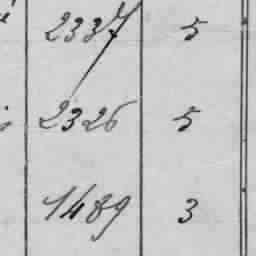 2337 5
2326 5
1489 3